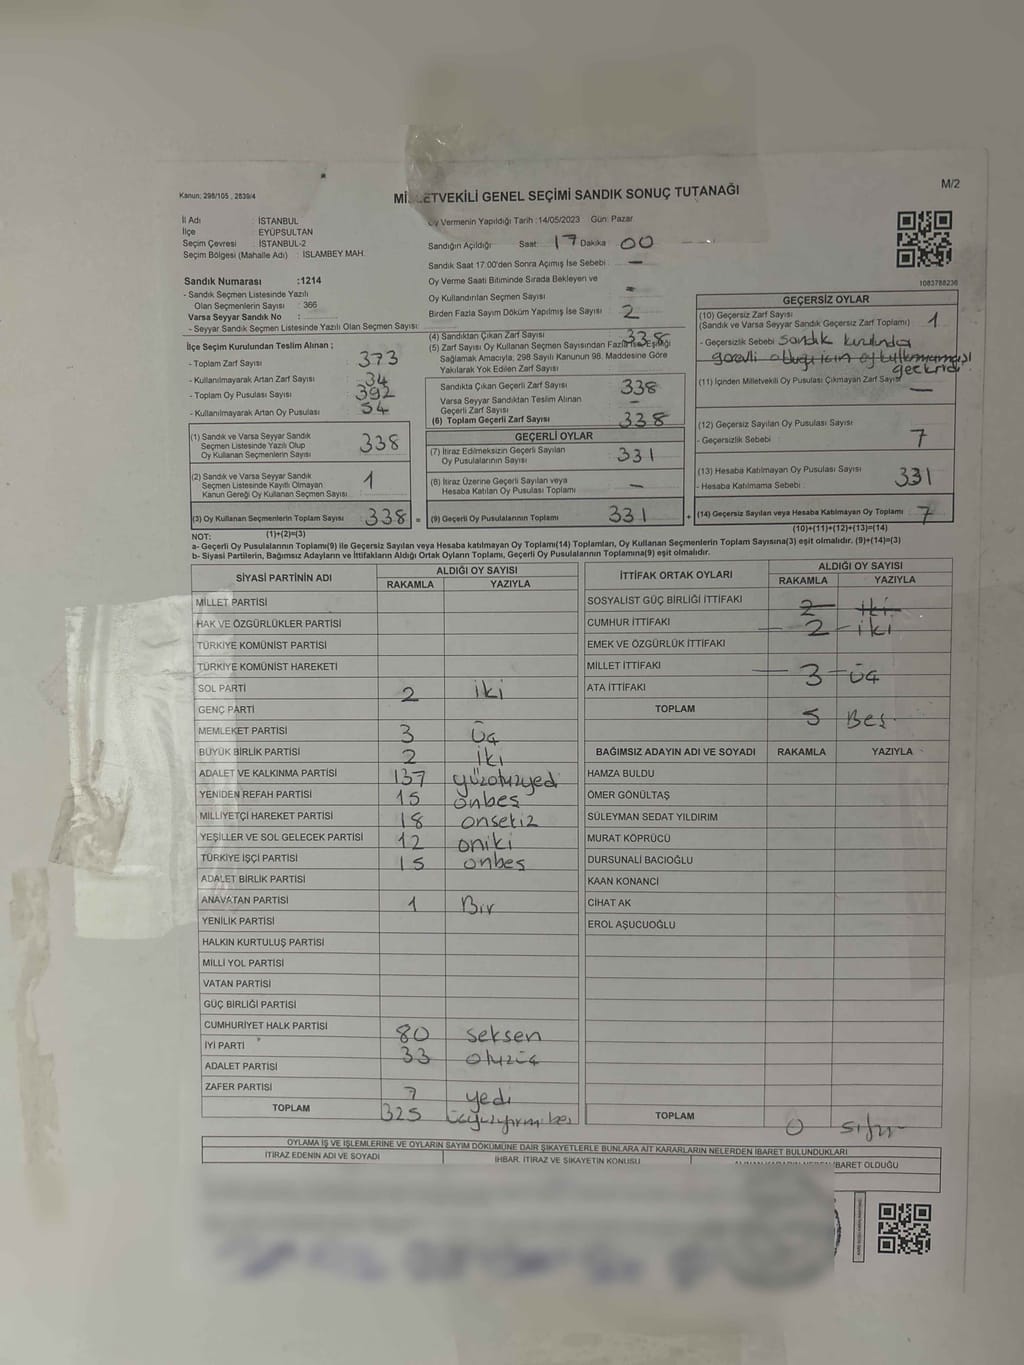 Kanun: 298/105 , 2839/4
MİLLETVEKİLİ GENEL SEÇİMİ SANDIK SONUÇ TUTANAĞI
M/2
İl Adı : İSTANBUL
İlçe : EYÜPSULTAN
Seçim Çevresi : İSTANBUL-2
Seçim Bölgesi (Mahalle Adı) : İSLAMBEY MAH.
Sandık Numarası :1214
- Sandık Seçmen Listesinde Yazılı
Olan Seçmenlerin Sayısı : 366
Varsa Seyyar Sandık No :
- Seyyar Sandık Seçmen Listesinde Yazılı Olan Seçmen Sayısı:
Oy Vermenin Yapıldığı Tarih :14/05/2023 Gün: Pazar
Sandığın Açıldığı Saat: 17 Dakika 00
Sandık Saat 17:00'den Sonra Açımış İse Sebebi : —
Oy Verme Saati Bitiminde Sırada Bekleyen ve
Oy Kullandırılan Seçmen Sayısı -
Birden Fazla Sayım Döküm Yapılmış İse Sayısı : 2
1083788236
İlçe Seçim Kurulundan Teslim Alınan ;
- Toplam Zarf Sayısı : 373
- Kullanılmayarak Artan Zarf Sayısı : 34
- Toplam Oy Pusulası Sayısı : 392
- Kullanılmayarak Artan Oy Pusulası : 54
(1) Sandık ve Varsa Seyyar Sandık
Seçmen Listesinde Yazılı Olup
Oy Kullanan Seçmenlerin Sayısı : 338
(2) Sandık ve Varsa Seyyar Sandık
Seçmen Listesinde Kayıtlı Olmayan
Kanun Gereği Oy Kullanan Seçmen Sayısı : 1
(3) Oy Kullanan Seçmenlerin Toplam Sayısı : 338 =
(1)+(2)=(3)
(4) Sandıktan Çıkan Zarf Sayısı : 338
(5) Zarf Sayısı Oy Kullanan Seçmen Sayısından Fazla ise Eşitliği
Sağlamak Amacıyla, 298 Sayılı Kanunun 98. Maddesine Göre
Yakılarak Yok Edilen Zarf Sayısı :
Sandıkta Çıkan Geçerli Zarf Sayısı : 338
Varsa Seyyar Sandıktan Teslim Alınan
Geçerli Zarf Sayısı : -
(6) Toplam Geçerli Zarf Sayısı : 338
GEÇERLİ OYLAR
(7) İtiraz Edilmeksizin Geçerli Sayılan
Oy Pusulalarının Sayısı : 331
(8) İtiraz Üzerine Geçerli Sayılan veya
Hesaba Katılan Oy Pusulası Toplamı : —
(9) Geçerli Oy Pusulalarının Toplamı : 331 +
GEÇERSİZ OYLAR
(10) Geçersiz Zarf Sayısı
(Sandık ve Varsa Seyyar Sandık Geçersiz Zarf Toplamı) : 1
- Geçersizlik Sebebi : Sandık kurulunda
görevli olduğu için oy
(11) İçinden Milletvekili Oy Pusulası Çıkmayan Zarf Sayısı : —
(12) Geçersiz Sayılan Oy Pusulası Sayısı
- Geçersizlik Sebebi : 7
(13) Hesaba Katılmayan Oy Pusulası Sayısı
- Hesaba Katılmama Sebebi : 331
(14) Geçersiz Sayılan veya Hesaba Katılmayan Oy Toplamı : 7
(10)+(11)+(12)+(13)=(14)
NOT:
a- Geçerli Oy Pusulalarının Toplamı(9) ile Geçersiz Sayılan veya Hesaba katılmayan Oy Toplamı(14) Toplamları, Oy Kullanan Seçmenlerin Toplam Sayısına(3) eşit olmalıdır. (9)+(14)=(3)
b- Siyasi Partilerin, Bağımsız Adayların ve İttifakların Aldığı Ortak Oyların Toplamı, Geçerli Oy Pusulalarının Toplamına(9) eşit olmalıdır.
SİYASİ PARTİNİN ADI
ALDIĞI OY SAYISI
RAKAMLA YAZIYLA
MİLLET PARTİSİ
HAK VE ÖZGÜRLÜKLER PARTİSİ
TÜRKİYE KOMÜNİST PARTİSİ
TÜRKİYE KOMÜNİST HAREKETİ
SOL PARTİ 2 iki
GENÇ PARTİ
MEMLEKET PARTİSİ 3 üç
BÜYÜK BİRLİK PARTİSİ 2 iki
ADALET VE KALKINMA PARTİSİ 137 yüzotuzyedi
YENİDEN REFAH PARTİSİ 15 onbeş
MİLLİYETÇİ HAREKET PARTİSİ 18 onsekiz
YEŞİLLER VE SOL GELECEK PARTİSİ 12 oniki
TÜRKİYE İŞÇİ PARTİSİ 15 onbeş
ADALET BİRLİK PARTİSİ
ANAVATAN PARTİSİ 1 Bir
YENİLİK PARTİSİ
HALKIN KURTULUŞ PARTİSİ
MİLLİ YOL PARTİSİ
VATAN PARTİSİ
GÜÇ BİRLİĞİ PARTİSİ
CUMHURİYET HALK PARTİSİ 80 seksen
İYİ PARTİ 33 otuzüç
ADALET PARTİSİ
ZAFER PARTİSİ 7 yedi
TOPLAM 325 üçyüzyirmibeş
İTTİFAK ORTAK OYLARI
ALDIĞI OY SAYISI
RAKAMLA YAZIYLA
SOSYALİST GÜÇ BİRLİĞİ İTTİFAKI 2 iki
CUMHUR İTTİFAKI 2 iki
EMEK VE ÖZGÜRLÜK İTTİFAKI
MİLLET İTTİFAKI 3 üç
ATA İTTİFAKI
TOPLAM 5 Beş
BAĞIMSIZ ADAYIN ADI VE SOYADI RAKAMLA YAZIYLA
HAMZA BULDU
ÖMER GÖNÜLTAŞ
SÜLEYMAN SEDAT YILDIRIM
MURAT KÖPRÜCÜ
DURSUNALİ BACIOĞLU
KAAN KONANCİ
CİHAT AK
EROL AŞUCUOĞLU
TOPLAM 0 sıfır
OYLAMA İŞ VE İŞLEMLERİNE VE OYLARIN SAYIM DÖKÜMÜNE DAİR ŞİKAYETLERLE BUNLARA AİT KARARLARIN NELERDEN İBARET BULUNDUKLARI
İTİRAZ EDENİN ADI VE SOYADI
İHBAR, İTİRAZ VE ŞİKAYETİN KONUSU
İBARET OLDUĞU